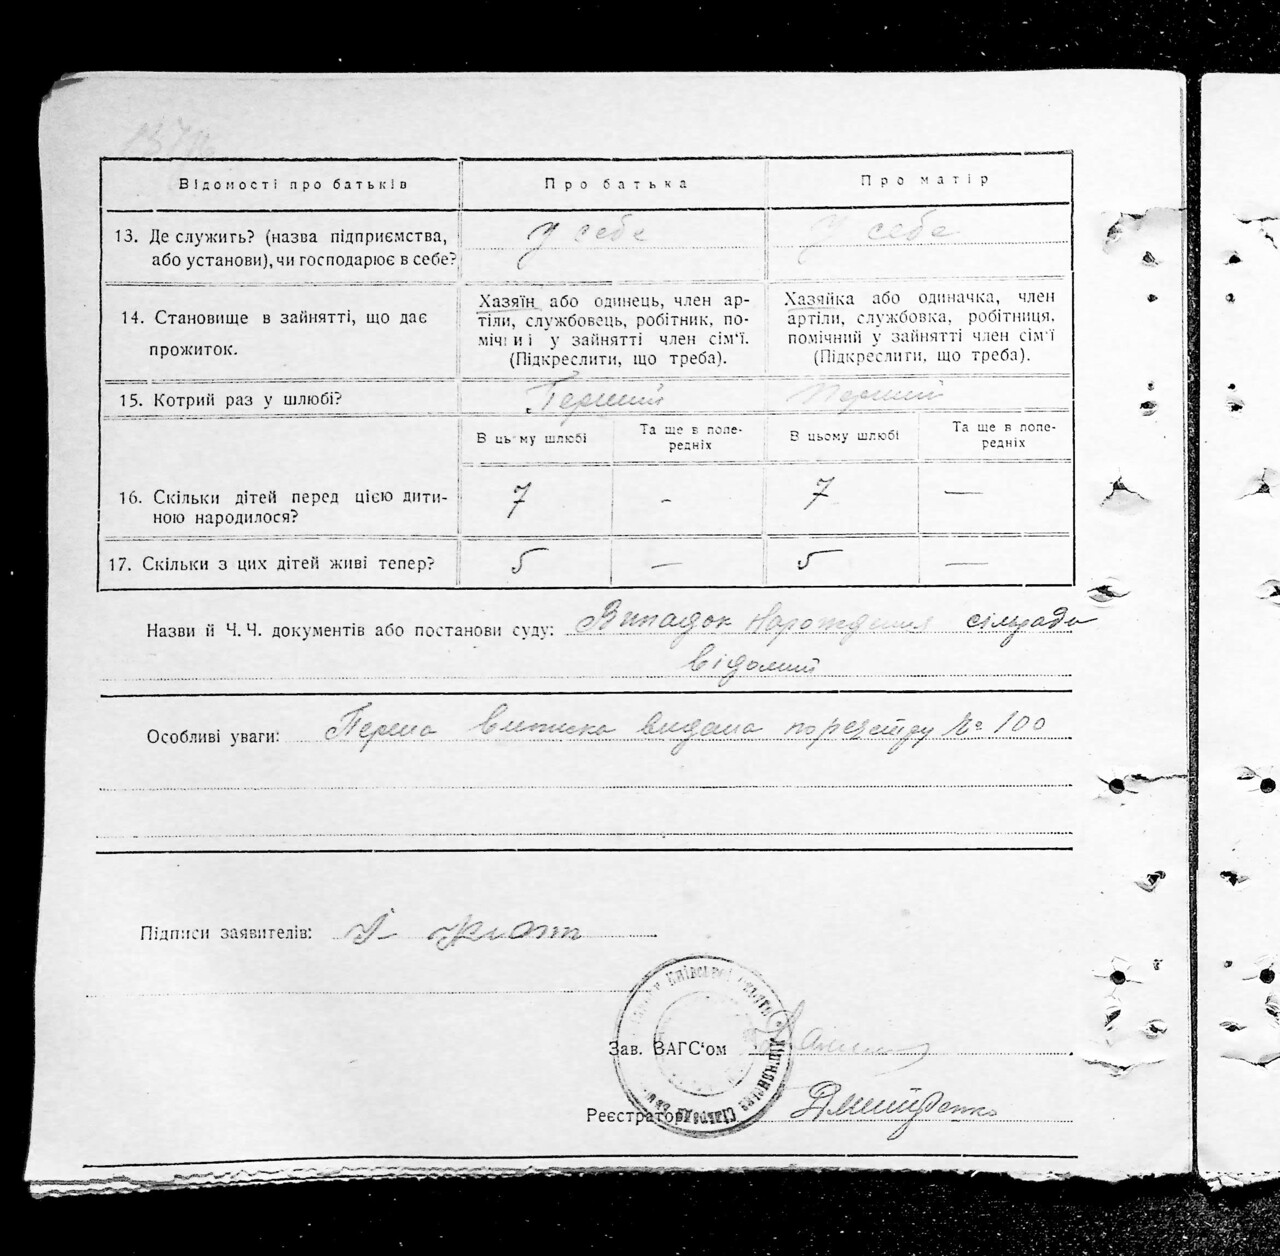 Відомості про батьків Про батька Про матір
13. Де служить? (назва підприємства, або установи), чи господарює в себе? у себе у себе
14. Становище в зайнятті, що дає прожиток.
Хазяїн або одинець, член ар-
тіли, службовець, робітник, по-
мічні і у зайнятті член сім'ї.
(Підкреслити, що треба).
Хазяйка або одиначка, член
артіли, службовка, робітниця,
помічний у зайнятті член сім'ї
(Підкреслити, що треба).
15. Котрий раз у шлюбі? Перший Перший
В цьому шлюбі Та ще в попе-
редніх
В цьому шлюбі Та ще в попе-
редніх
16. Скільки дітей перед цією дити-
ною народилося? 7 - 7 —
17. Скільки з цих дітей живі тепер? 5 — 5 —
Назви й Ч. Ч. документів або постанови суду: Випадок Нарождення сільради
відомий
Особливі уваги: Перша виписка видана по реєстру № 100
Підписи заявителів:
Зав. ЗАГС'ом
Реєстратор Дмитренко